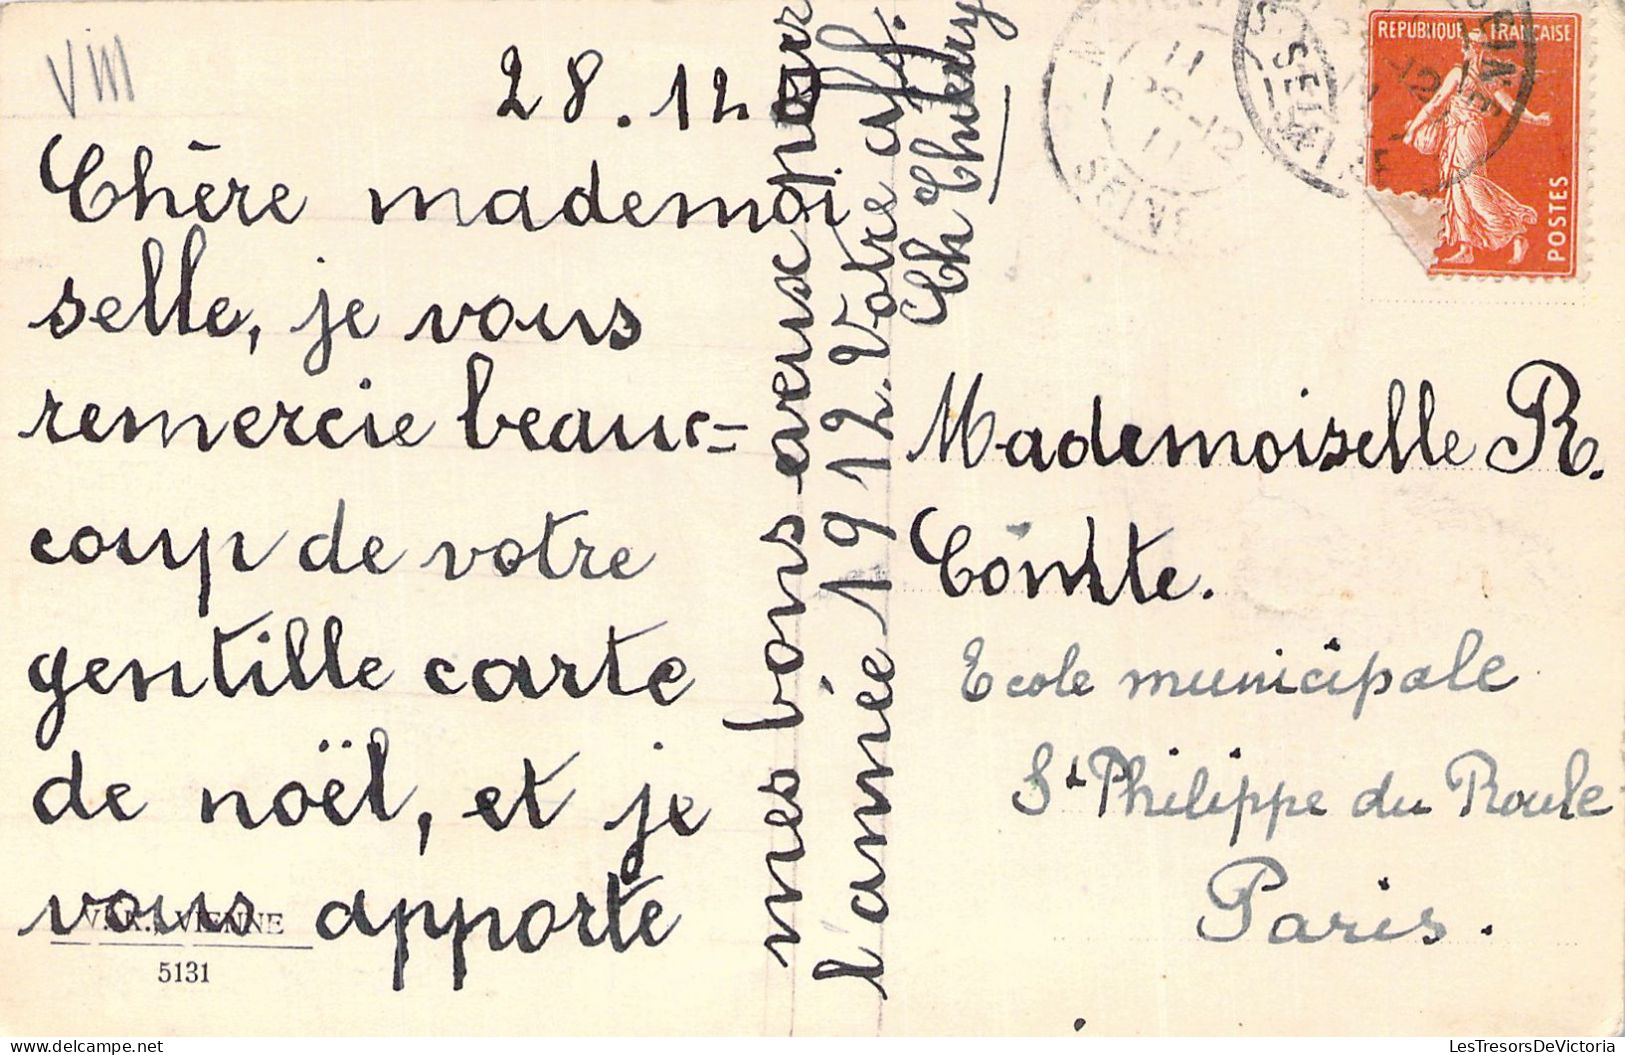 VIII
28.12
Chère mademoi
selle, je vous
remercie beauc=
coup de votre
gentille carte
de noël, et je
vous apporte
V. K., VIENNE
5131
mes bons aveux pour
l'année 1912. Votre aff.
Ch Thiedry
REPUBLIQUE FRANÇAISE
POSTES
11
28-12
11
SEINE
SEINE
Mademoiselle R.
Comte.
Ecole municipale
St Philippe du Roule
Paris.
LesTresorsDeVictoria.com
LesTresorsDeVictoria